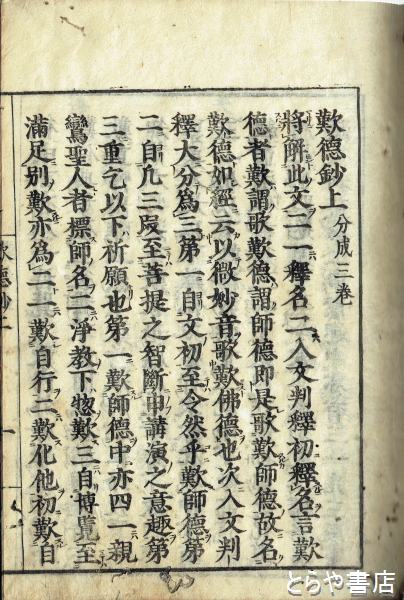 歎德鈔上 分成三卷
將解此文二一釋名二入文判釋初釋名言歎
德者歎謂歌歎德謂師德即是歌歎師德故名
歎德如經云以微妙音歌歎佛德也次入文判
釋大分爲三第一自文初至令然乎歎師德第
二自凡三段至菩提之智斷申講演之意趣第
三重乞以下祈願也第一歎師德中亦四一親
鸞聖人者標師名二淨教下惣歎三自博覽至
滿足別歎亦爲二一歎自行二歎化他初歎自
とらや書店